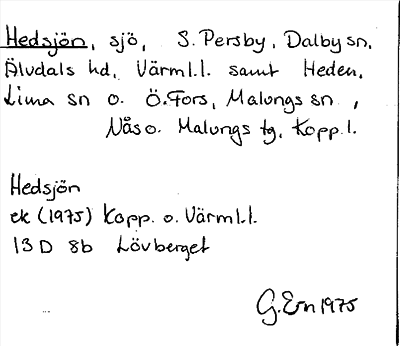 Hedsjön, sjö, S. Persby, Dalby sn,
Älvdals hd, Värml.l. samt Heden,
Lima sn o. Ö. Fors, Malungs sn,
Nås o. Malungs tg, Kopp.l.
Hedsjön
ek (1975) Kopp. o. Värml.l.
13D 8b Lövberget
G. Ern 1975